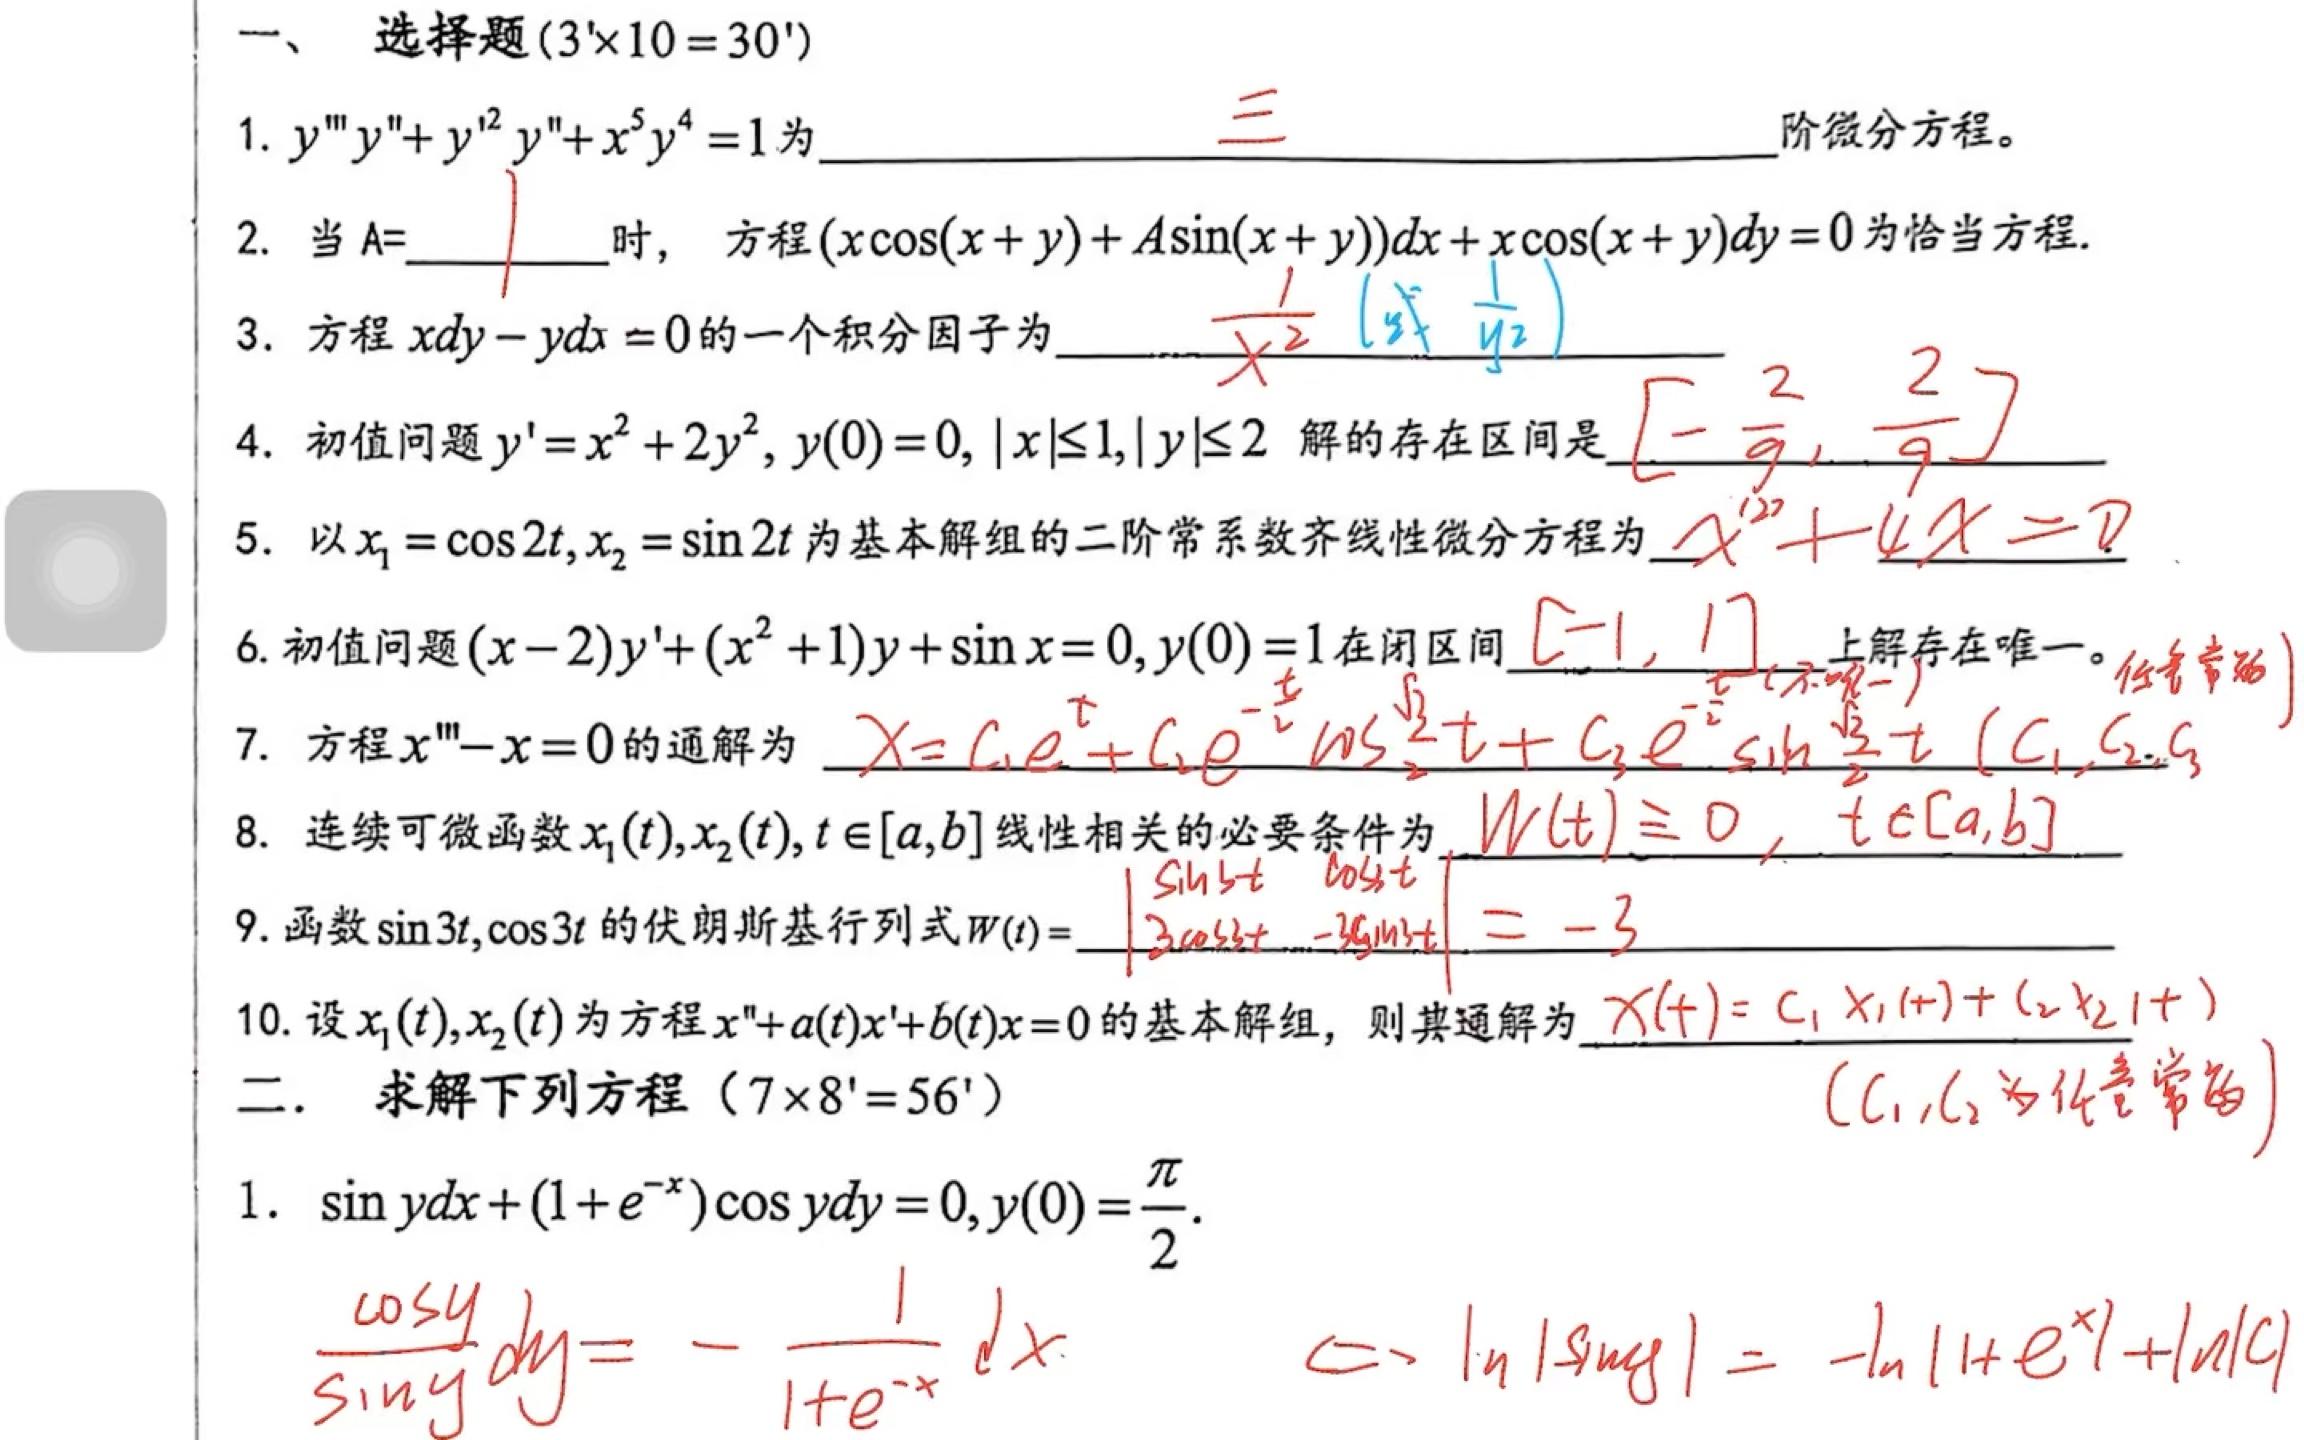 一、 选择题(3'×10=30')
1. y'''y''+y'²y''+x⁵y⁴=1为 三 阶微分方程。
2. 当 A= 1 时, 方程(xcos(x+y)+Asin(x+y))dx+xcos(x+y)dy=0为恰当方程.
3. 方程 xdy-ydx=0的一个积分因子为 1/x² (或 1/y²)
4. 初值问题y'=x²+2y², y(0)=0, |x|≤1,|y|≤2 解的存在区间是 [-2/9, 2/9]
5. 以x₁=cos2t,x₂=sin2t为基本解组的二阶常系数齐线性微分方程为 x⁽²⁾+4x=0
6. 初值问题(x-2)y'+(x²+1)y+sinx=0,y(0)=1在闭区间 [-1, 1] 上解存在唯一。
(不唯一) 任意常数)
7. 方程x'''-x=0的通解为 x=C₁e^t+C₂e^(-t/2)cos(√3/2)t+C₃e^(-t/2)sin(√3/2)t (C₁,C₂,C₃
8. 连续可微函数x₁(t),x₂(t),t∈[a,b]线性相关的必要条件为 W(t)≡0, t∈[a,b]
9. 函数sin3t,cos3t的伏朗斯基行列式W(t)= |sin3t cos3t
3cos3t -3sin3t| = -3
10. 设x₁(t),x₂(t)为方程x''+a(t)x'+b(t)x=0的基本解组, 则其通解为 x(t)=C₁x₁(t)+C₂x₂(t)
(C₁,C₂为任意常数)
二. 求解下列方程（7×8'=56'）
1. sinydx+(1+e⁻ˣ)cosydy=0,y(0)=π/2.
cosy/siny dy = - 1/(1+e⁻ˣ) dx <=> ln|siny| = -ln|1+eˣ|+ln|C|